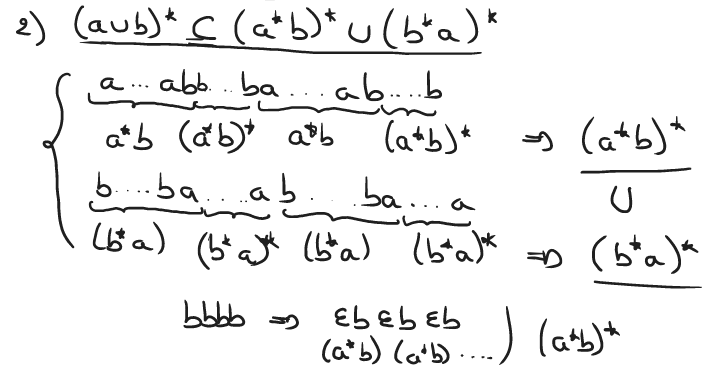 2) (a∪b)* ⊆ (a*b)* ∪ (b*a)*
a ... abb ..... ba ..... ab ..... b
a*b (a*b)* a*b (a*b)* ⇒ (a*b)*
∪
b ..... ba ..... a b ..... ba ... a
(b*a) (b*a)* (b*a) (b*a)* ⇒ (b*a)*
bbbb ⇒ εb εb εb
(a*b) (a*b) ....) (a*b)*